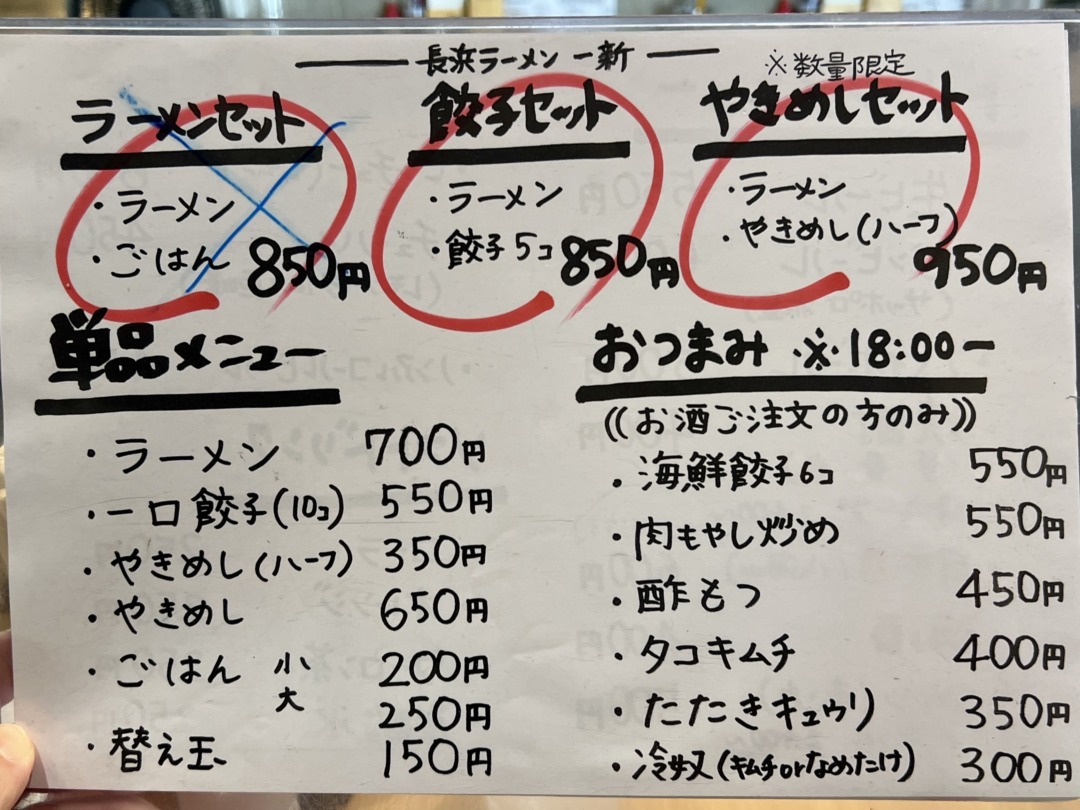 長浜ラーメン 一新
ラーメンセット
・ラーメン
・ごはん 850円
餃子セット
・ラーメン
・餃子5コ 850円
※数量限定
やきめしセット
・ラーメン
・やきめし(ハーフ)
950円
単品メニュー
・ラーメン 700円
・一口餃子(10コ) 550円
・やきめし(ハーフ) 350円
・やきめし 650円
・ごはん 小 200円
大 250円
・替え玉 150円
おつまみ ※18:00ー
((お酒ご注文の方のみ))
・海鮮餃子6コ 550円
・肉もやし炒め 550円
・酢もつ 450円
・タコキムチ 400円
・たたきキュウリ 350円
・冷奴(キムチorなめたけ) 300円